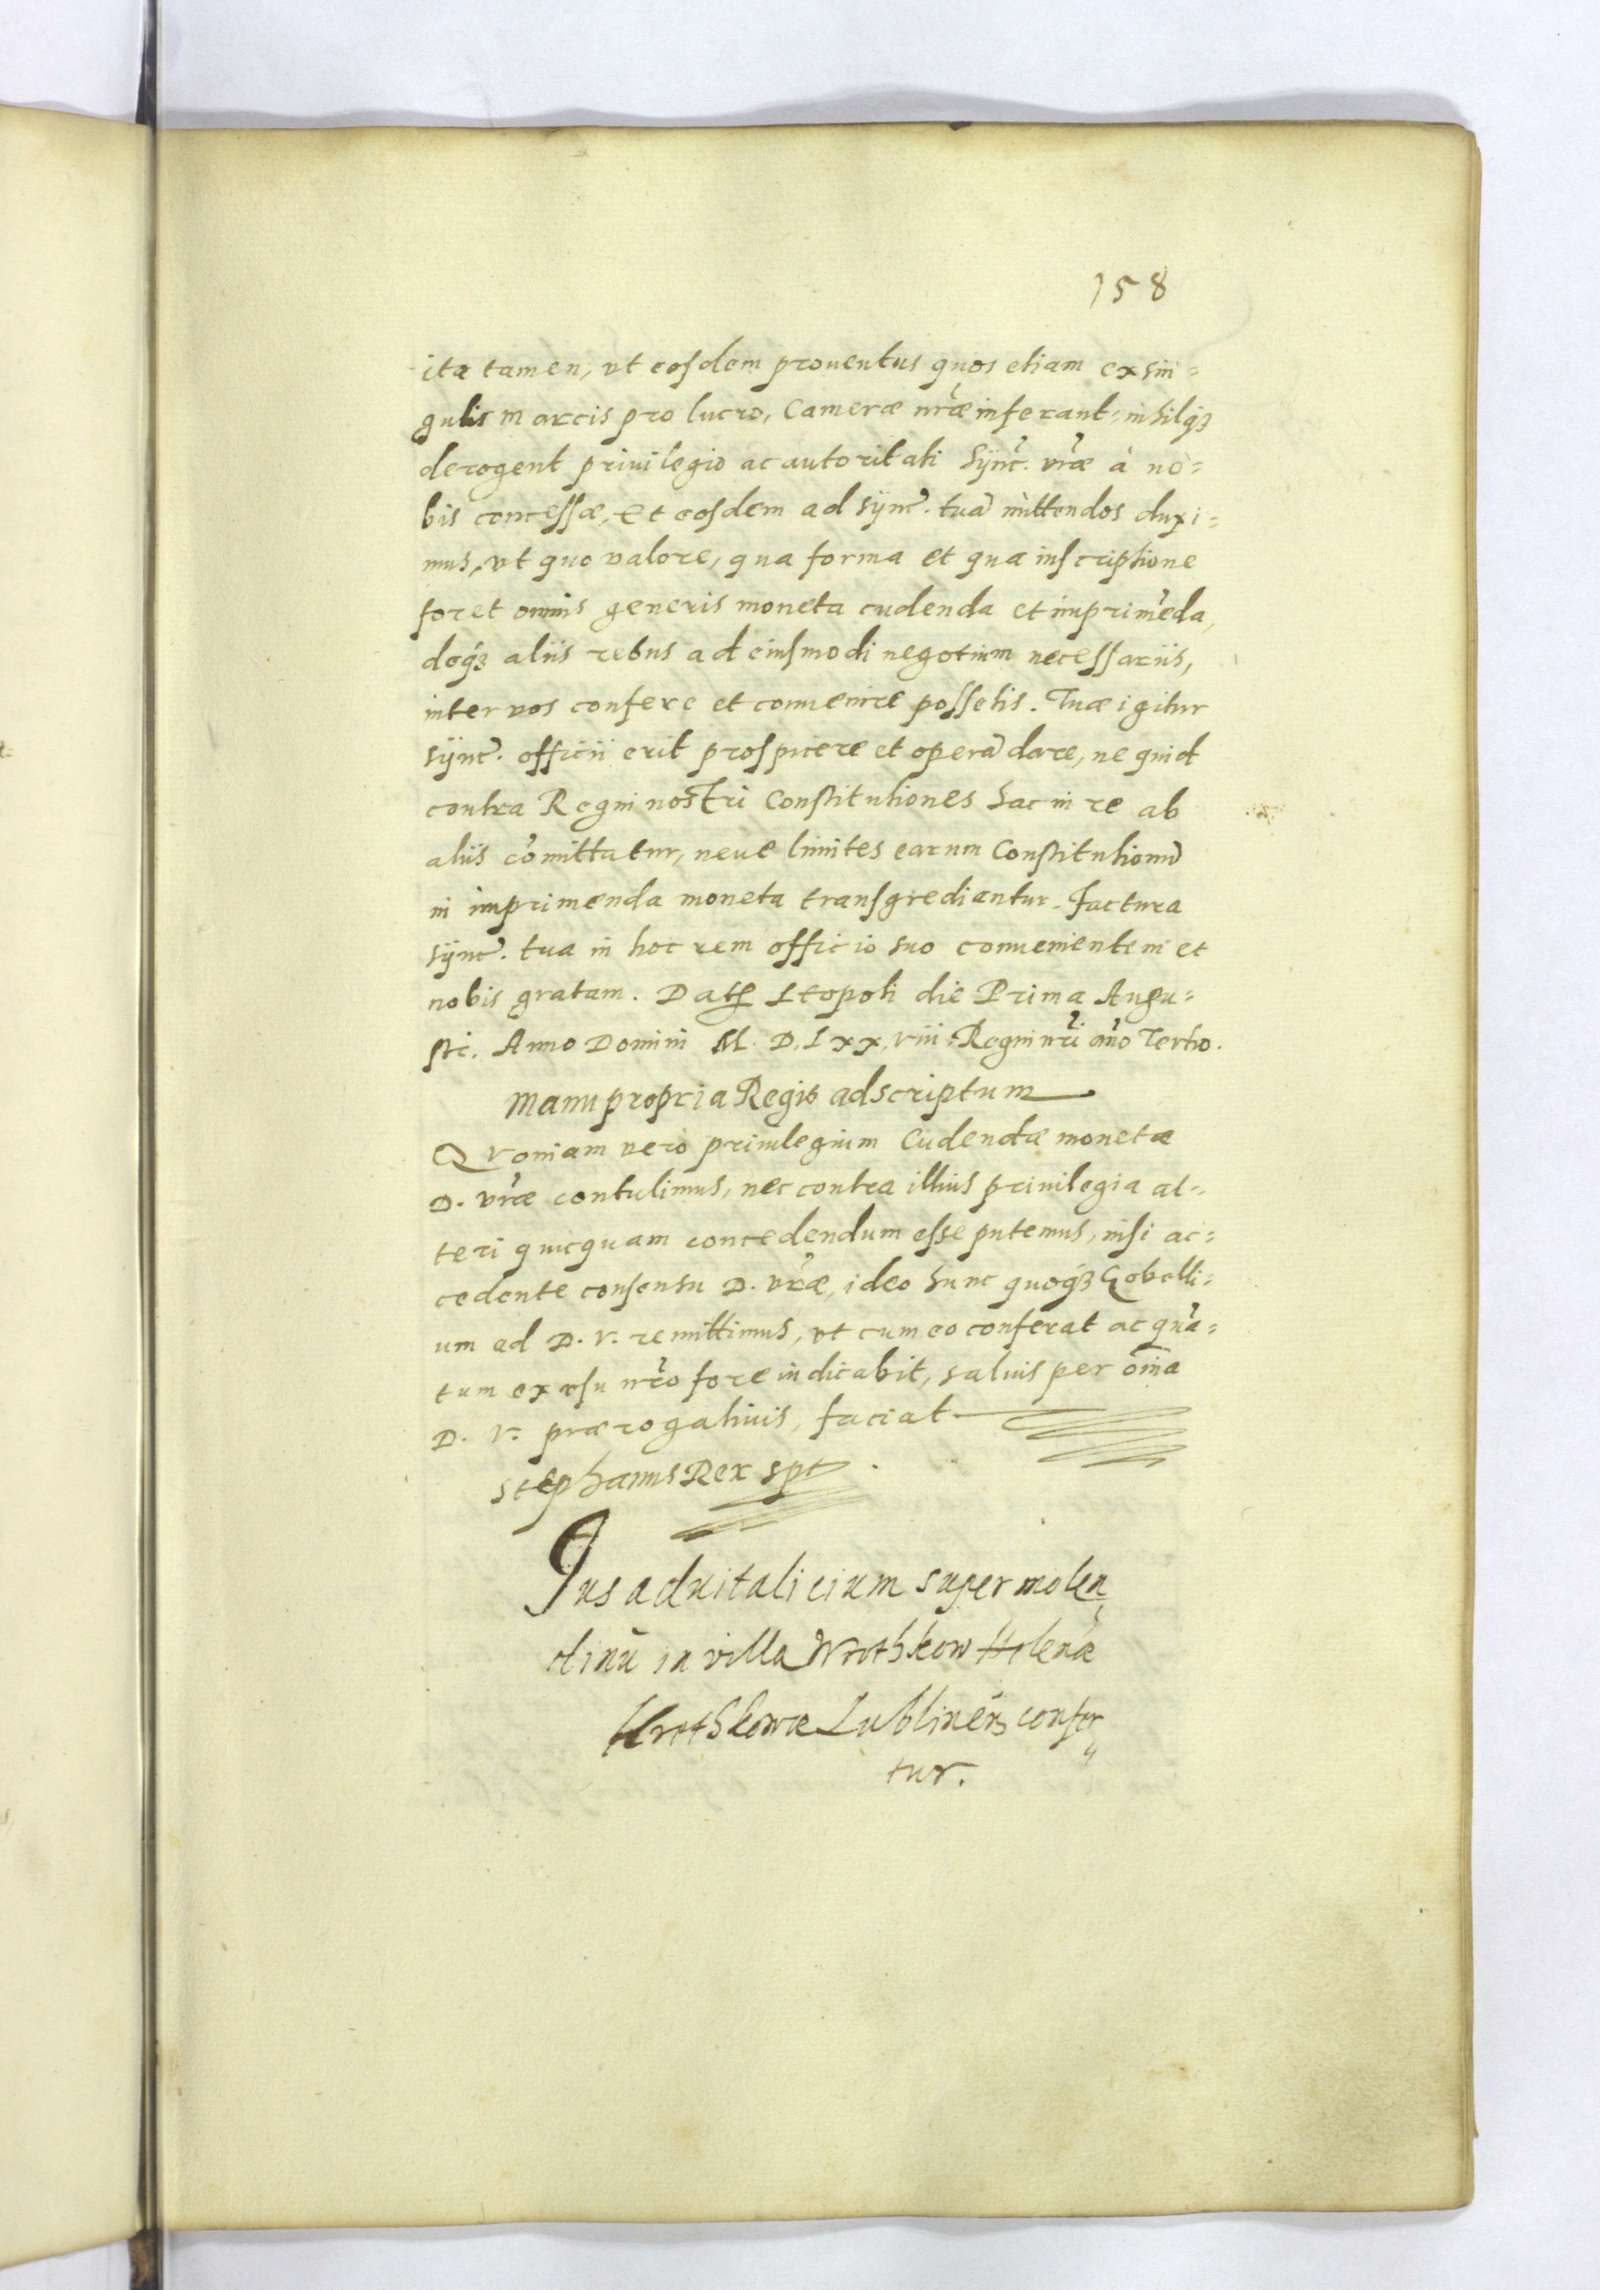 158
ita tamen, vt eosdem prouentus quos etiam ex sin=
gulis marcis pro lucro, Cameræ nr̃æ inferant, nihilq₃
derogent priuilegio ac autoritati Sync̃. vr̃æ à no=
bis concessæ, Et eosdem ad Sync̃. tuã mittendos duxi=
mus, vt quo valore, qua forma et qua inscriptione
foret omnis generis moneta cudenda et imprimẽda,
deq₃ aliis rebus ad eiusmodi negotium necessariis,
inter vos confere et conuenire possetis. Tuæ igitur
Sync̃. officii erit prospicere et operã dare, ne quid
contra Regni nostri Constitutiones hac in re ab
aliis cõmittatur, neue limites earum Constitutionũ
in imprimenda moneta transgrediantur. Factura
Sync̃. tua in hoc rem officio suo conuenientem et
nobis gratam. Dat₃ Leopoli die Prima Augu=
sti. Anno Domini M. D. Lxx. viii. Regni nr̃i año Tertio.
Manu propria Regis adscriptum
Qvoniam verò priuilegium Cudendæ monetæ
D. vr̃æ contulimus, nec contra illius priuilegia al=
teri quicquam concedendum esse putemus, nisi ac=
cedente consensu D. vr̃æ, ideo hunc quoq₃ Gobelli=
um ad D. V. remittimus, vt cum eo conferat ac quã=
tum ex vsu nr̃o fore indicabit, saluis per oĩa
D. V. prærogatiuis, faciat
Stephanus Rex spt
Jus aduitalicium super molen
dinũ in villa Wrothkow Helenæ
Wrothkowæ Lublinẽn confer
tur.